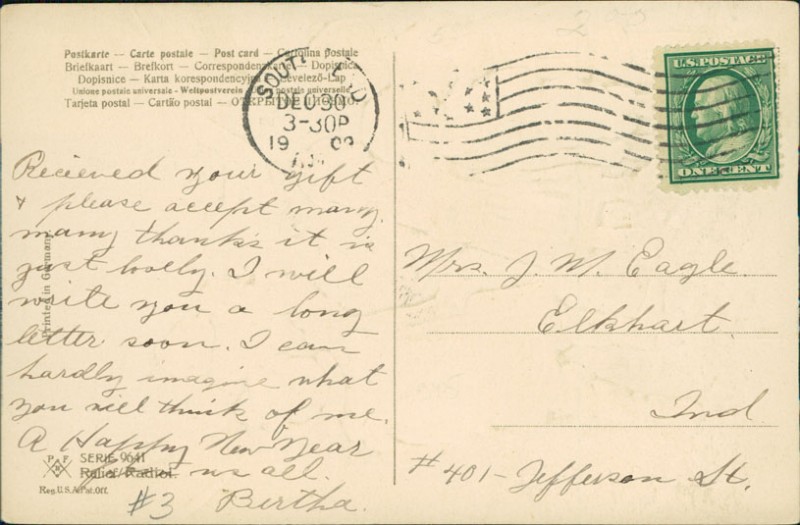 Postkarte — Carte postale — Post card — Cartolina postale
Briefkaart — Brefkort — Correspondenzkarte — Dopisnica
Dopisnice — Karta korespondencyjna — Levelező-Lap
Unione postale universale - Weltpostverein postale universelle
Tarjeta postal — Cartão postal — ОТКРЫТОЕ ПИСЬМО.
SOUTH BEND
DEC 30
3-30P
19 09
IND.
U.S. POSTAGE
ONE CENT
Recieved your gift
& please accept many,
many thanks it is
just lovly. I will
write you a long
letter soon. I can
hardly imagine what
you will think of me.
A Happy New Year
us all.
#3 Bertha.
Printed in Germany
P F B
SERIE 9641
Relief/Radiol.
Reg. U.S.A. Pat. Off.
Mrs. J. M. Eagle.
Elkhart.
Ind
#401 - Jefferson St.